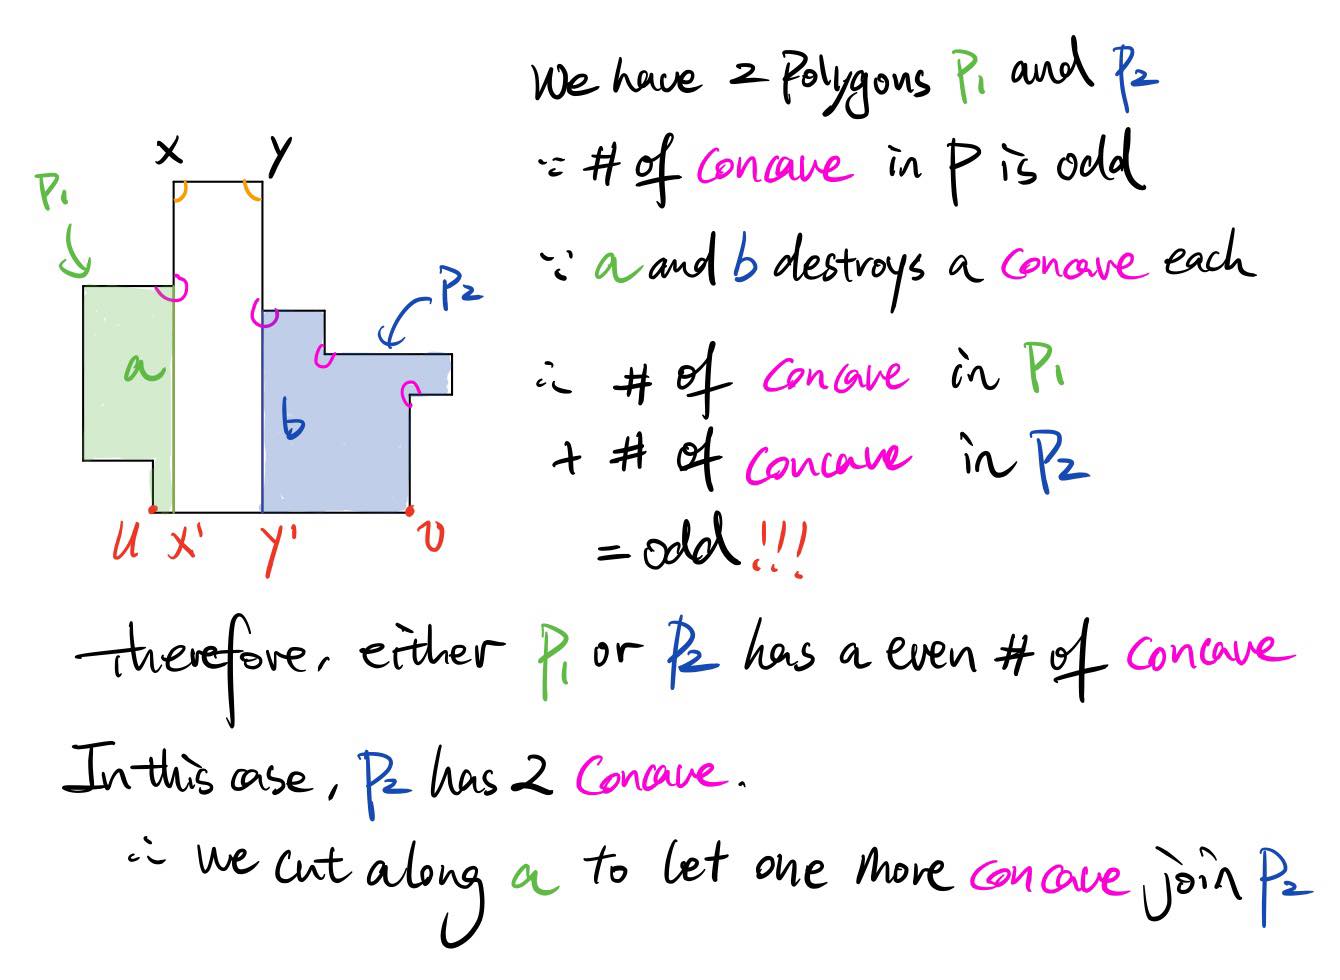 We have 2 Polygons P₁ and P₂
∵ # of concave in P is odd
∵ a and b destroys a concave each
∴ # of concave in P₁
+ # of concave in P₂
= odd !!!
X y
P₁
P₂
a
b
u x' y' v
therefore, either P₁ or P₂ has a even # of concave
In this case, P₂ has 2 Concave.
∴ we cut along a to let one more concave join P₂